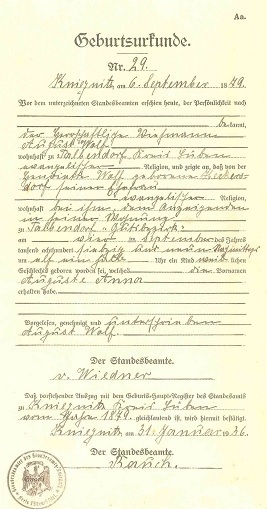 Aa.
Geburtsurkunde.
Nr. 29.
Kniegnitz, am 6. September 1879.
Vor dem unterzeichneten Standesbeamten erschien heute, der Persönlichkeit nach
bekannt,
der herrschaftliche
August Wolf
wohnhaft zu Talbendorf Kreis Lüben
evangelischer Religion, und zeigte an, daß von der
Wolf geborene
dorf seiner Ehefrau
evangelischer Religion,
wohnhaft bei ihm, dem Anzeigenden
in seiner Wohnung
zu Talbendorf Gutsbezirk
am September des Jahres
tausend achthundert siebzig und neun Nachmittags
um elf ein halb Uhr ein Kind weiblichen
Geschlechts geboren worden sei, welches die Vornamen
Auguste Anna
erhalten habe.
Vorgelesen, genehmigt und unterschrieben
August Wolf.
Der Standesbeamte.
v. Wiedner
Daß vorstehender Auszug mit dem Geburts-Haupt-Register des Standesamts
zu Kniegnitz Kreis Lüben
vom Jahre 1879 gleichlautend ist, wird hiermit bestätigt.
Kniegnitz, am 31. Januar 1936.
Der Standesbeamte.